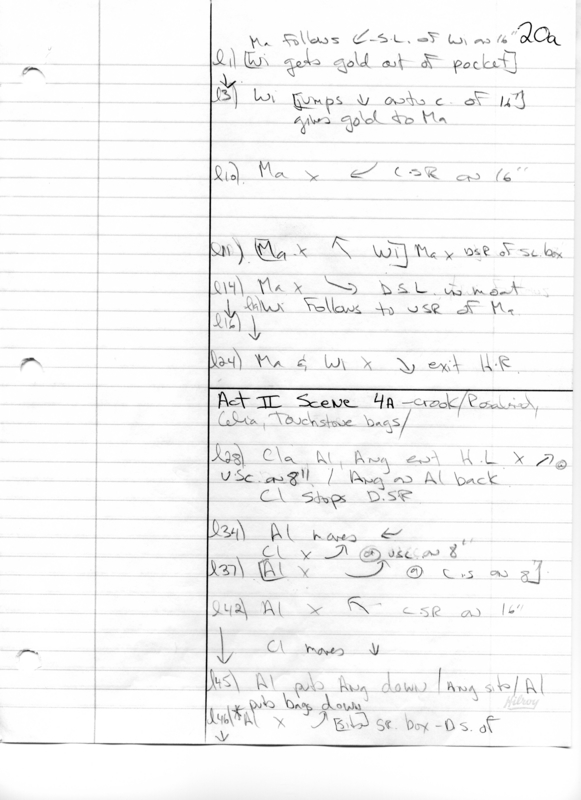 Ma Follows ← S.L. of Wi on 16" 20a
l1) [Wi gets gold out of pocket]
↓
l3) Wi [jumps ↓ onto c. of 16"]
gives gold to Ma
l10) Ma x ↙ C.SR on 16"
l11) [Ma x ↖ Wi] Ma x DSR of SL box
l14) Ma x ↘ DSL in moat
↓ Wi Follows to USR of Ma
l16) ↓
l24) Ma & Wi x ↘ exit H.R.
Act II Scene 4A - crook/Rosalind,
Celia, Touchstone bags/
l28) Cla Al, Ang ent H.L x ↗ @
USC on 8" / Ang on Al back
Cl stops D.SR
l34) Al moves ←
Cl x ↗ @ USC on 8"
l37) [Al x ⤴ @ C.S on 8"]
l42) Al x ↖ CSR on 16"
↓ Cl moves ↓
l45) Al puts Ang down / Ang sits / Al
* puts bags down
l46) * Al x ↗ [sits] SR. box - D.S. of
↓
Hilroy